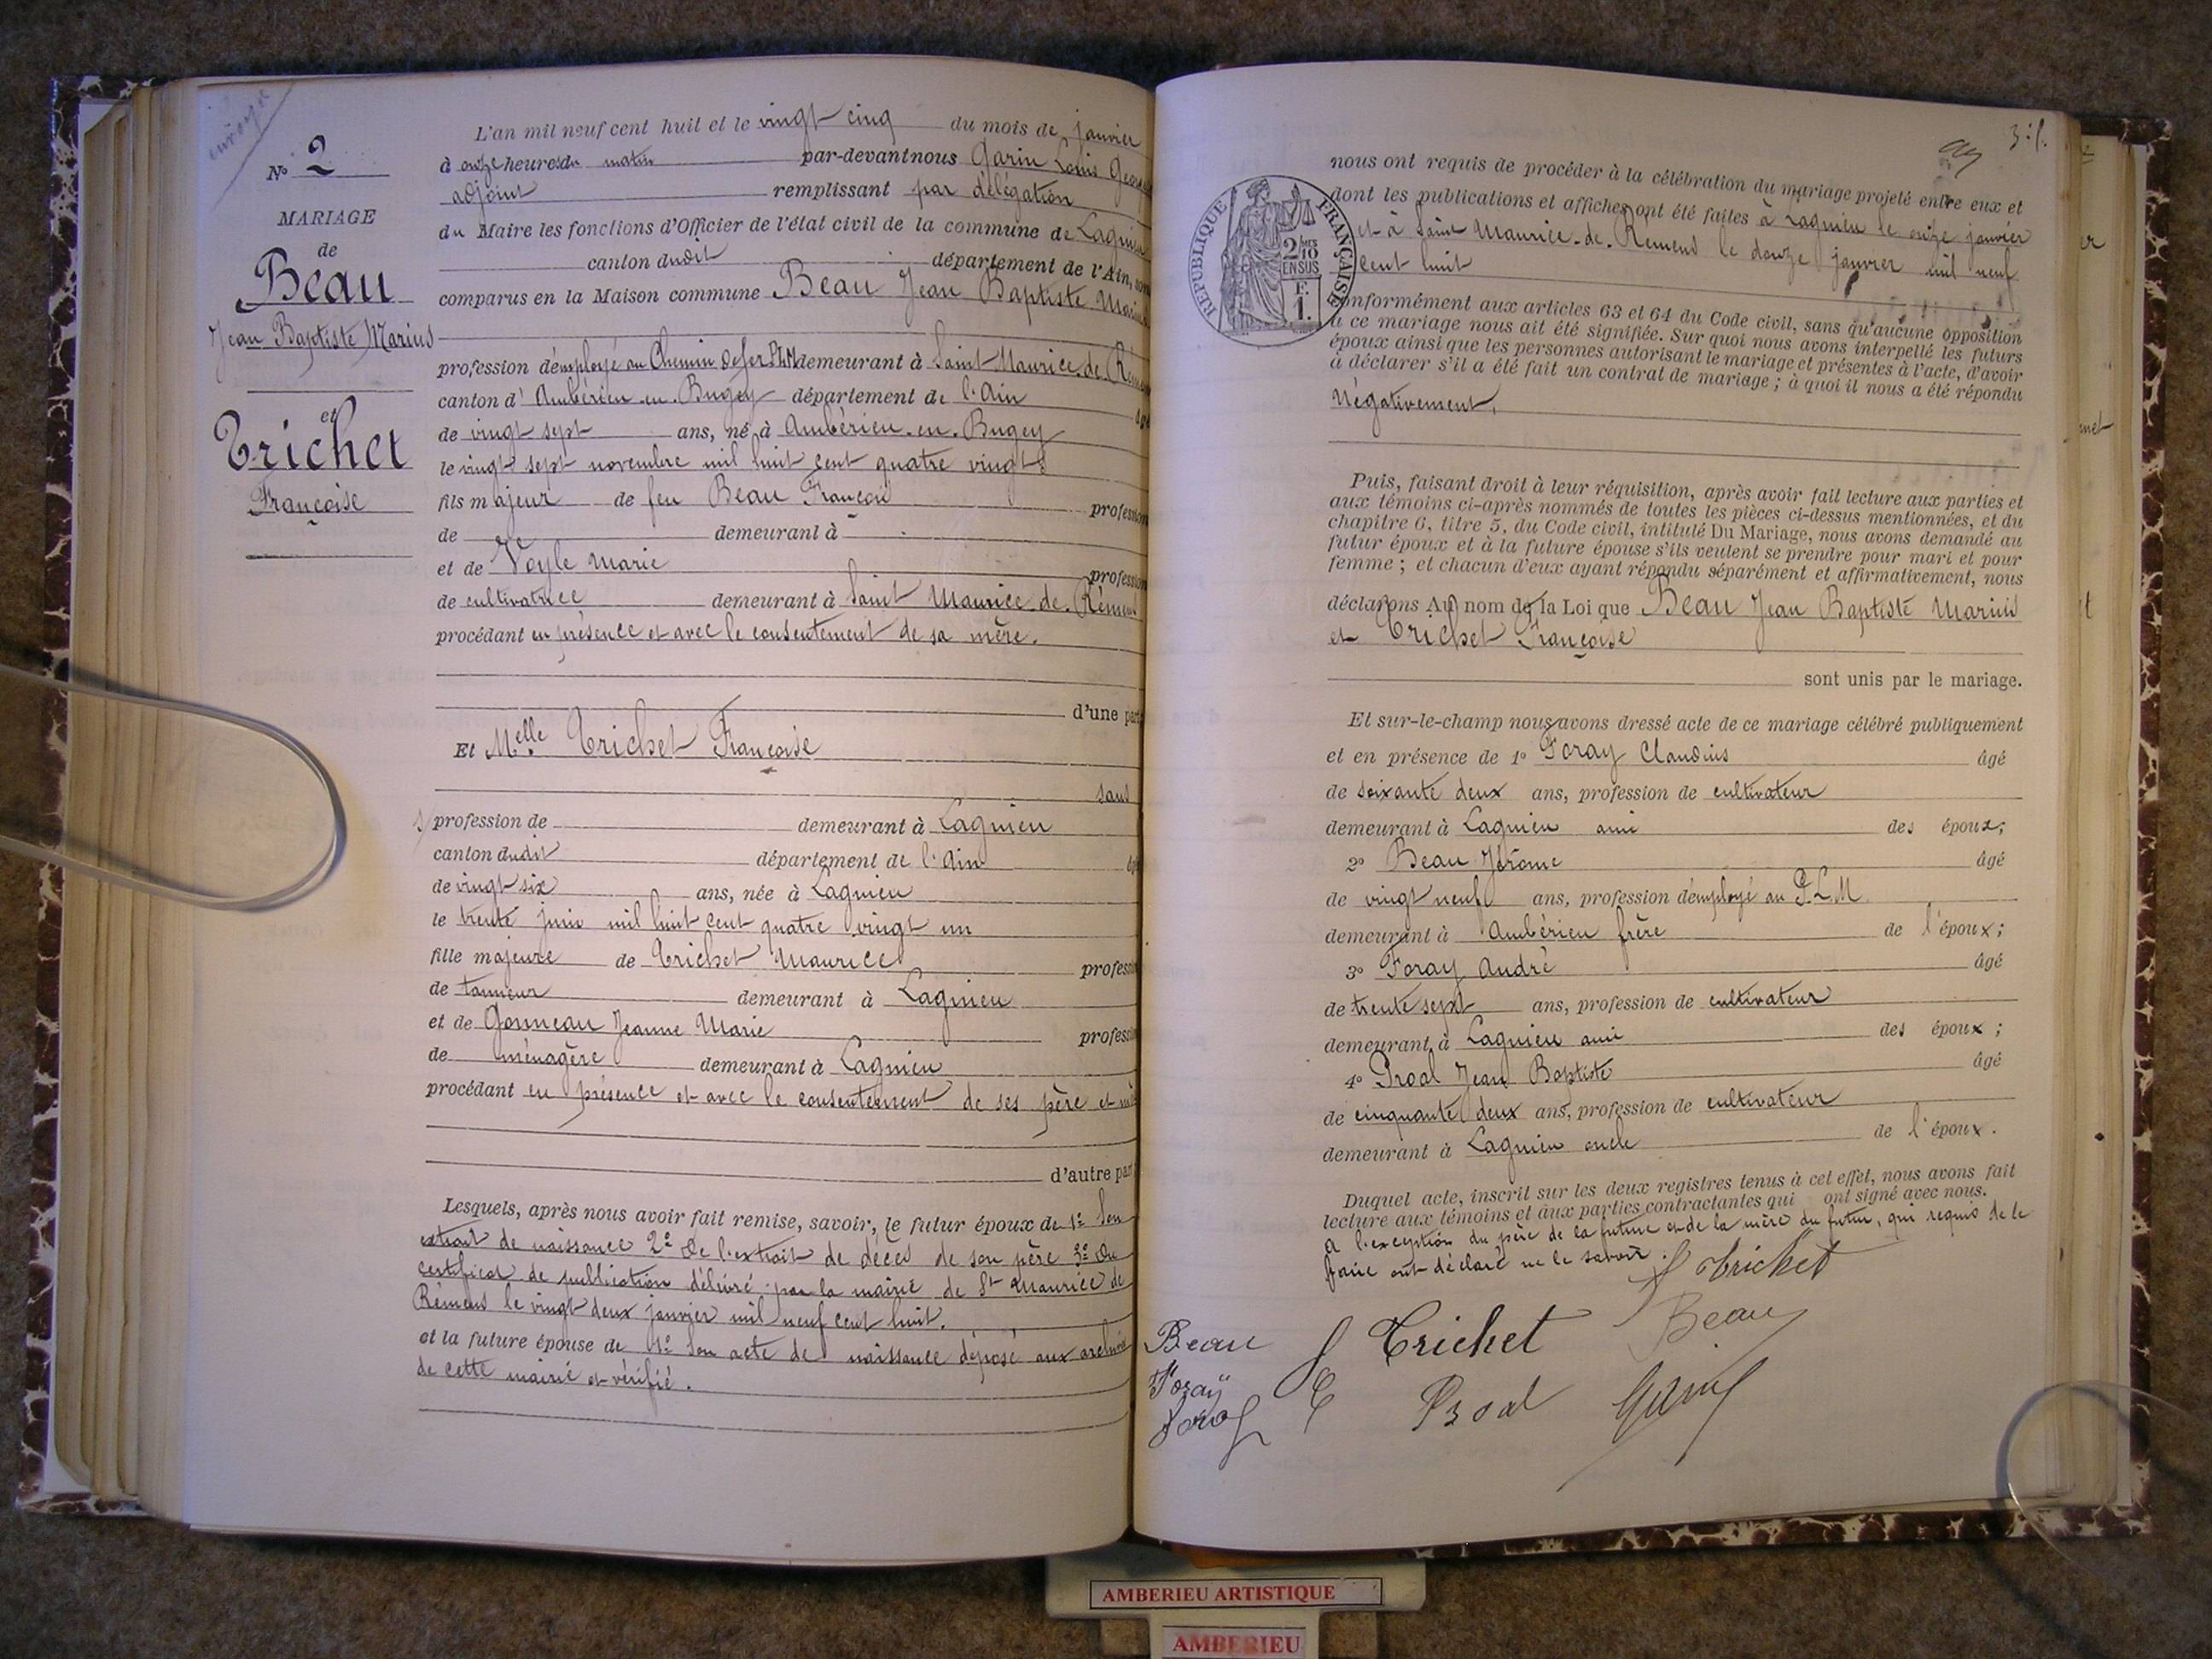 envoyé
N° 2
MARIAGE
de
Beau
Jean Baptiste Marius
et
Trichet
Françoise
L'an mil neuf cent huit et le vingt cinq du mois de janvier
à onze heures du matin par-devant nous Garin Louis
adjoint remplissant par délégation
du Maire les fonctions d'Officier de l'état civil de la commune de Lagnieu
canton dudit département de l'Ain, sont
comparus en la Maison commune Beau Jean Baptiste Marius
profession d'employé au Chemin de fer PLM demeurant à Saint-Maurice-de-Rémens
canton d'Ambérieu-en-Bugey département de l'Ain âgé
de vingt sept ans, né à Ambérieu-en-Bugey
le vingt sept novembre mil huit cent quatre vingts
fils majeur de feu Beau François profession
de demeurant à
et de Voyle Marie profession
de cultivatrice demeurant à Saint Maurice-de-Rémens
procédant en présence et avec le consentement de sa mère.
d'une part
Et Melle Trichet Françoise
sans
profession de demeurant à Lagnieu
canton dudit département de l'Ain âgé
de vingt six ans, née à Lagnieu
le trente juin mil huit cent quatre vingt un
fille majeure de Trichet Maurice profession
de tanneur demeurant à Lagnieu
et de Gonneau Jeanne Marie profession
de ménagère demeurant à Lagnieu
procédant en présence et avec le consentement de ses père et mère
d'autre part
Lesquels, après nous avoir fait remise, savoir, le futur époux de 1° Son
extrait de naissance 2° De l'extrait de décès de son père 3° Du
certificat de publication délivré par la mairie de St Maurice de
Rémens le vingt deux janvier mil neuf cent huit.
et la future épouse de 1° Son acte de naissance déposé aux archives
de cette mairie et vérifié.
3:f.
nous ont requis de procéder à la célébration du mariage projeté entre eux et
dont les publications et affiches ont été faites à Lagnieu le onze janvier
et à Saint Maurice-de-Rémens le douze janvier mil neuf
cent huit
RÉPUBLIQUE FRANÇAISE
2/10
EN SUS
F.
1.
conformément aux articles 63 et 64 du Code civil, sans qu'aucune opposition
à ce mariage nous ait été signifiée. Sur quoi nous avons interpellé les futurs
époux ainsi que les personnes autorisant le mariage et présentes à l'acte, d'avoir
à déclarer s'il a été fait un contrat de mariage ; à quoi il nous a été répondu
Négativement.
Puis, faisant droit à leur réquisition, après avoir fait lecture aux parties et
aux témoins ci-après nommés de toutes les pièces ci-dessus mentionnées, et du
chapitre 6, titre 5, du Code civil, intitulé Du Mariage, nous avons demandé au
futur époux et à la future épouse s'ils veulent se prendre pour mari et pour
femme ; et chacun d'eux ayant répondu séparément et affirmativement, nous
déclarons Au nom de la Loi que Beau Jean Baptiste Marius
et Trichet Françoise
sont unis par le mariage.
Et sur-le-champ nous avons dressé acte de ce mariage célébré publiquement
et en présence de 1° Foray Claudius âgé
de soixante deux ans, profession de cultivateur
demeurant à Lagnieu ami des époux;
2° Beau Jérôme âgé
de vingt neuf ans, profession d'employé au P.L.M.
demeurant à Ambérieu frère de l'époux;
3° Foray André âgé
de trente sept ans, profession de cultivateur
demeurant à Lagnieu ami des époux ;
4° Proal Jean Baptiste âgé
de cinquante deux ans, profession de cultivateur
demeurant à Lagnieu oncle de l'époux.
Duquel acte, inscrit sur les deux registres tenus à cet effet, nous avons fait
lecture aux témoins et aux parties contractantes qui ont signé avec nous.
A l'exception du père de la future et de la mère du futur, qui requis de le
faire ont déclaré ne le savoir. f Trichet
Beau f Trichet Beau
Foraÿ
Foray Proal Garin
AMBERIEU ARTISTIQUE
AMBERIEU